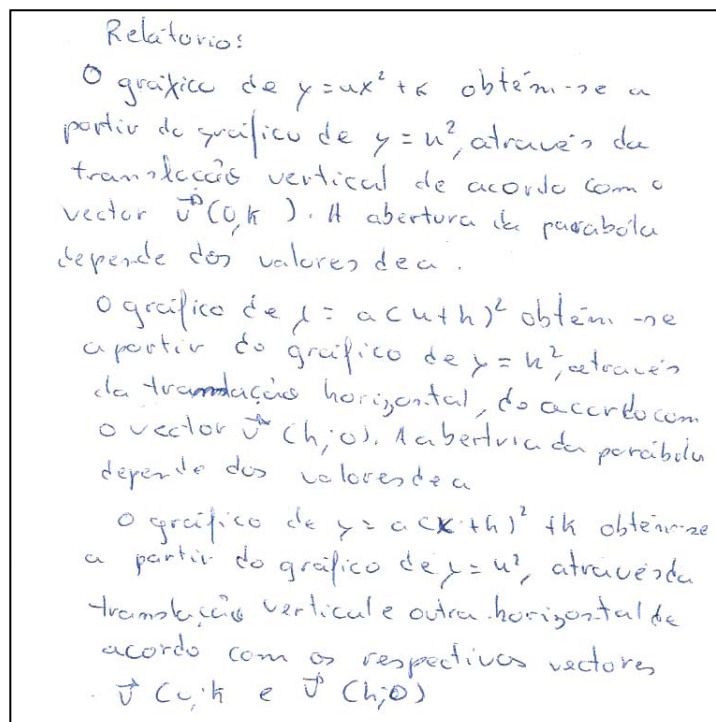 Relátorio:
O gráfico de y = ax² + k obtém-se a
partir do gráfico de y = x², através da
translacção vertical de acordo com o
vector v⃗ (0,k). A abertura da parabóla
depende dos valores de a.
O gráfico de y = a(x+h)² obtém-se
a partir do gráfico de y = x², através
da translação horizontal, do acordo com
o vector v⃗ (h;0). A abertura da parábola
depende dos valores de a
O gráfico de y = a(x+h)² +k obtém-se
a partir do gráfico de y = x², através da
translação vertical e outra horizontal de
acordo com os respectivos vectores
v⃗ (0;k e v⃗ (h;0)